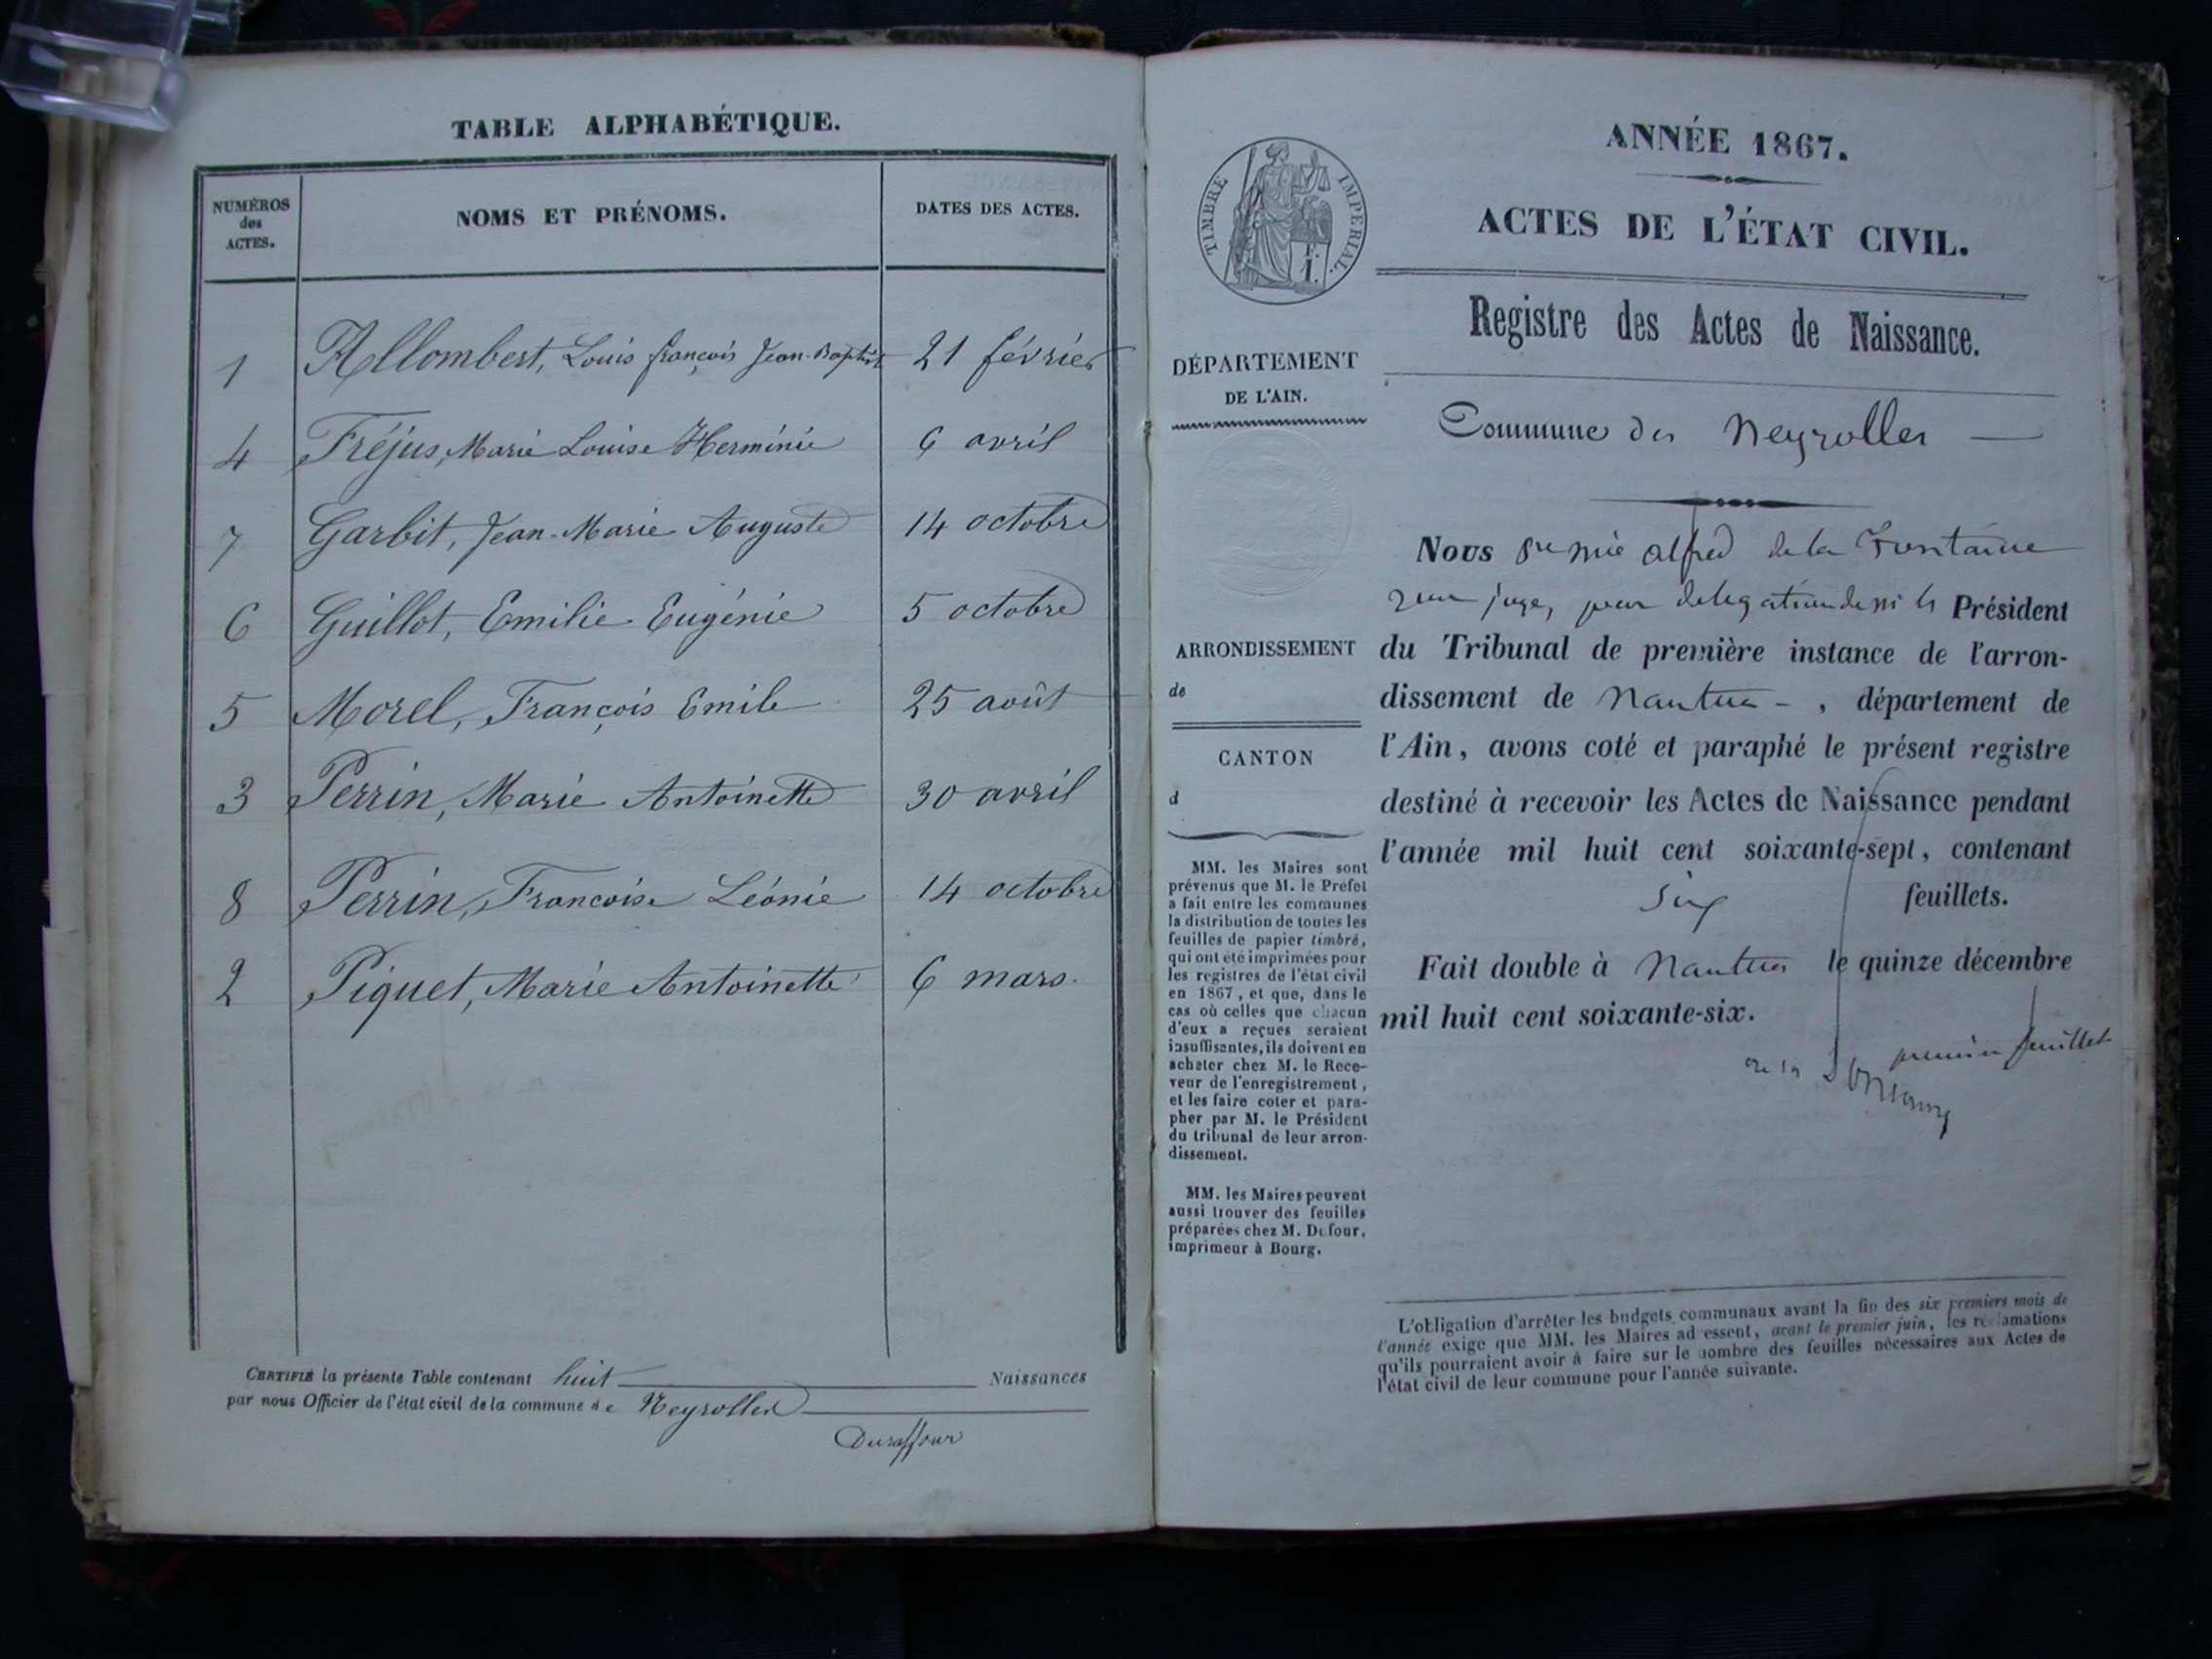 TABLE ALPHABÉTIQUE.
NUMÉROS des ACTES.
NOMS ET PRÉNOMS.
DATES DES ACTES.
1 Allombert, Louis françois Jean-Baptiste 21 février
4 Fréjus, Marie Louise Herminie 6 avril
7 Garbit, Jean-Marie Auguste 14 octobre
6 Guillot, Emilie Eugénie 5 octobre
5 Morel, François Emile 25 août
3 Perrin, Marie Antoinette 30 avril
8 Perrin, Francoise Léonie 14 octobre
2 Piquet, Marie Antoinette 6 mars.
CERTIFIÉ la présente Table contenant huit Naissances
par nous Officier de l'état civil de la commune de Neyrolles
Duraffour
TIMBRE IMPÉRIAL.
F.
1.
DÉPARTEMENT
DE L'AIN.
ARRONDISSEMENT
de
CANTON
d
MM. les Maires sont
prévenus que M. le Préfet
a fait entre les communes
la distribution de toutes les
feuilles de papier timbré,
qui ont été imprimées pour
les registres de l'état civil
en 1867, et que, dans le
cas où celles que chacun
d'eux a reçues seraient
insuffisantes, ils doivent en
acheter chez M. le Rece-
veur de l'enregistrement,
et les faire coter et para-
pher par M. le Président
du tribunal de leur arron-
dissement.
MM. les Maires peuvent
aussi trouver des feuilles
préparées chez M. Dufour,
imprimeur à Bourg.
ANNÉE 1867.
ACTES DE L'ÉTAT CIVIL.
Registre des Actes de Naissance.
Commune des Neyrolles
Nous alfred de la Fontaine
juge, par délégation de Président
du Tribunal de première instance de l'arron-
dissement de Nantua, département de
l'Ain, avons coté et paraphé le présent registre
destiné à recevoir les Actes de Naissance pendant
l'année mil huit cent soixante-sept, contenant
six feuillets.
Fait double à Nantua le quinze décembre
mil huit cent soixante-six.
premier feuillet
de la Fontaine
L'obligation d'arrêter les budgets communaux avant la fin des six premiers mois de
l'année exige que MM. les Maires adressent, avant le premier juin, les réclamations
qu'ils pourraient avoir à faire sur le nombre des feuilles nécessaires aux Actes de
l'état civil de leur commune pour l'année suivante.